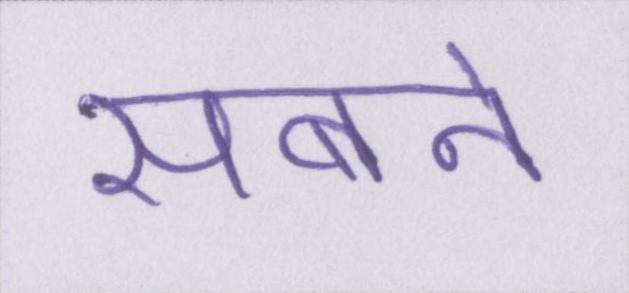 सबने